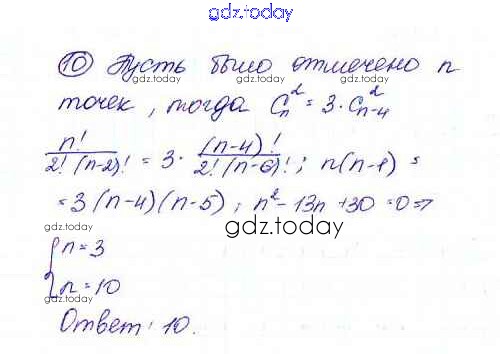 gdz.today
10 Пусть было отмечено n
gdz.today gdz.today
точек, тогда C_n^2 = 3 · C_{n-4}^2
n! / 2!(n-2)! = 3 · (n-4)! / 2!(n-6)!; n(n-1) =
gdz.today gdz.today
= 3(n-4)(n-5); n^2 - 13n + 30 = 0 =>
gdz.today
[n = 3
n = 10
gdz.today gdz.today
Ответ: 10.
gdz.today